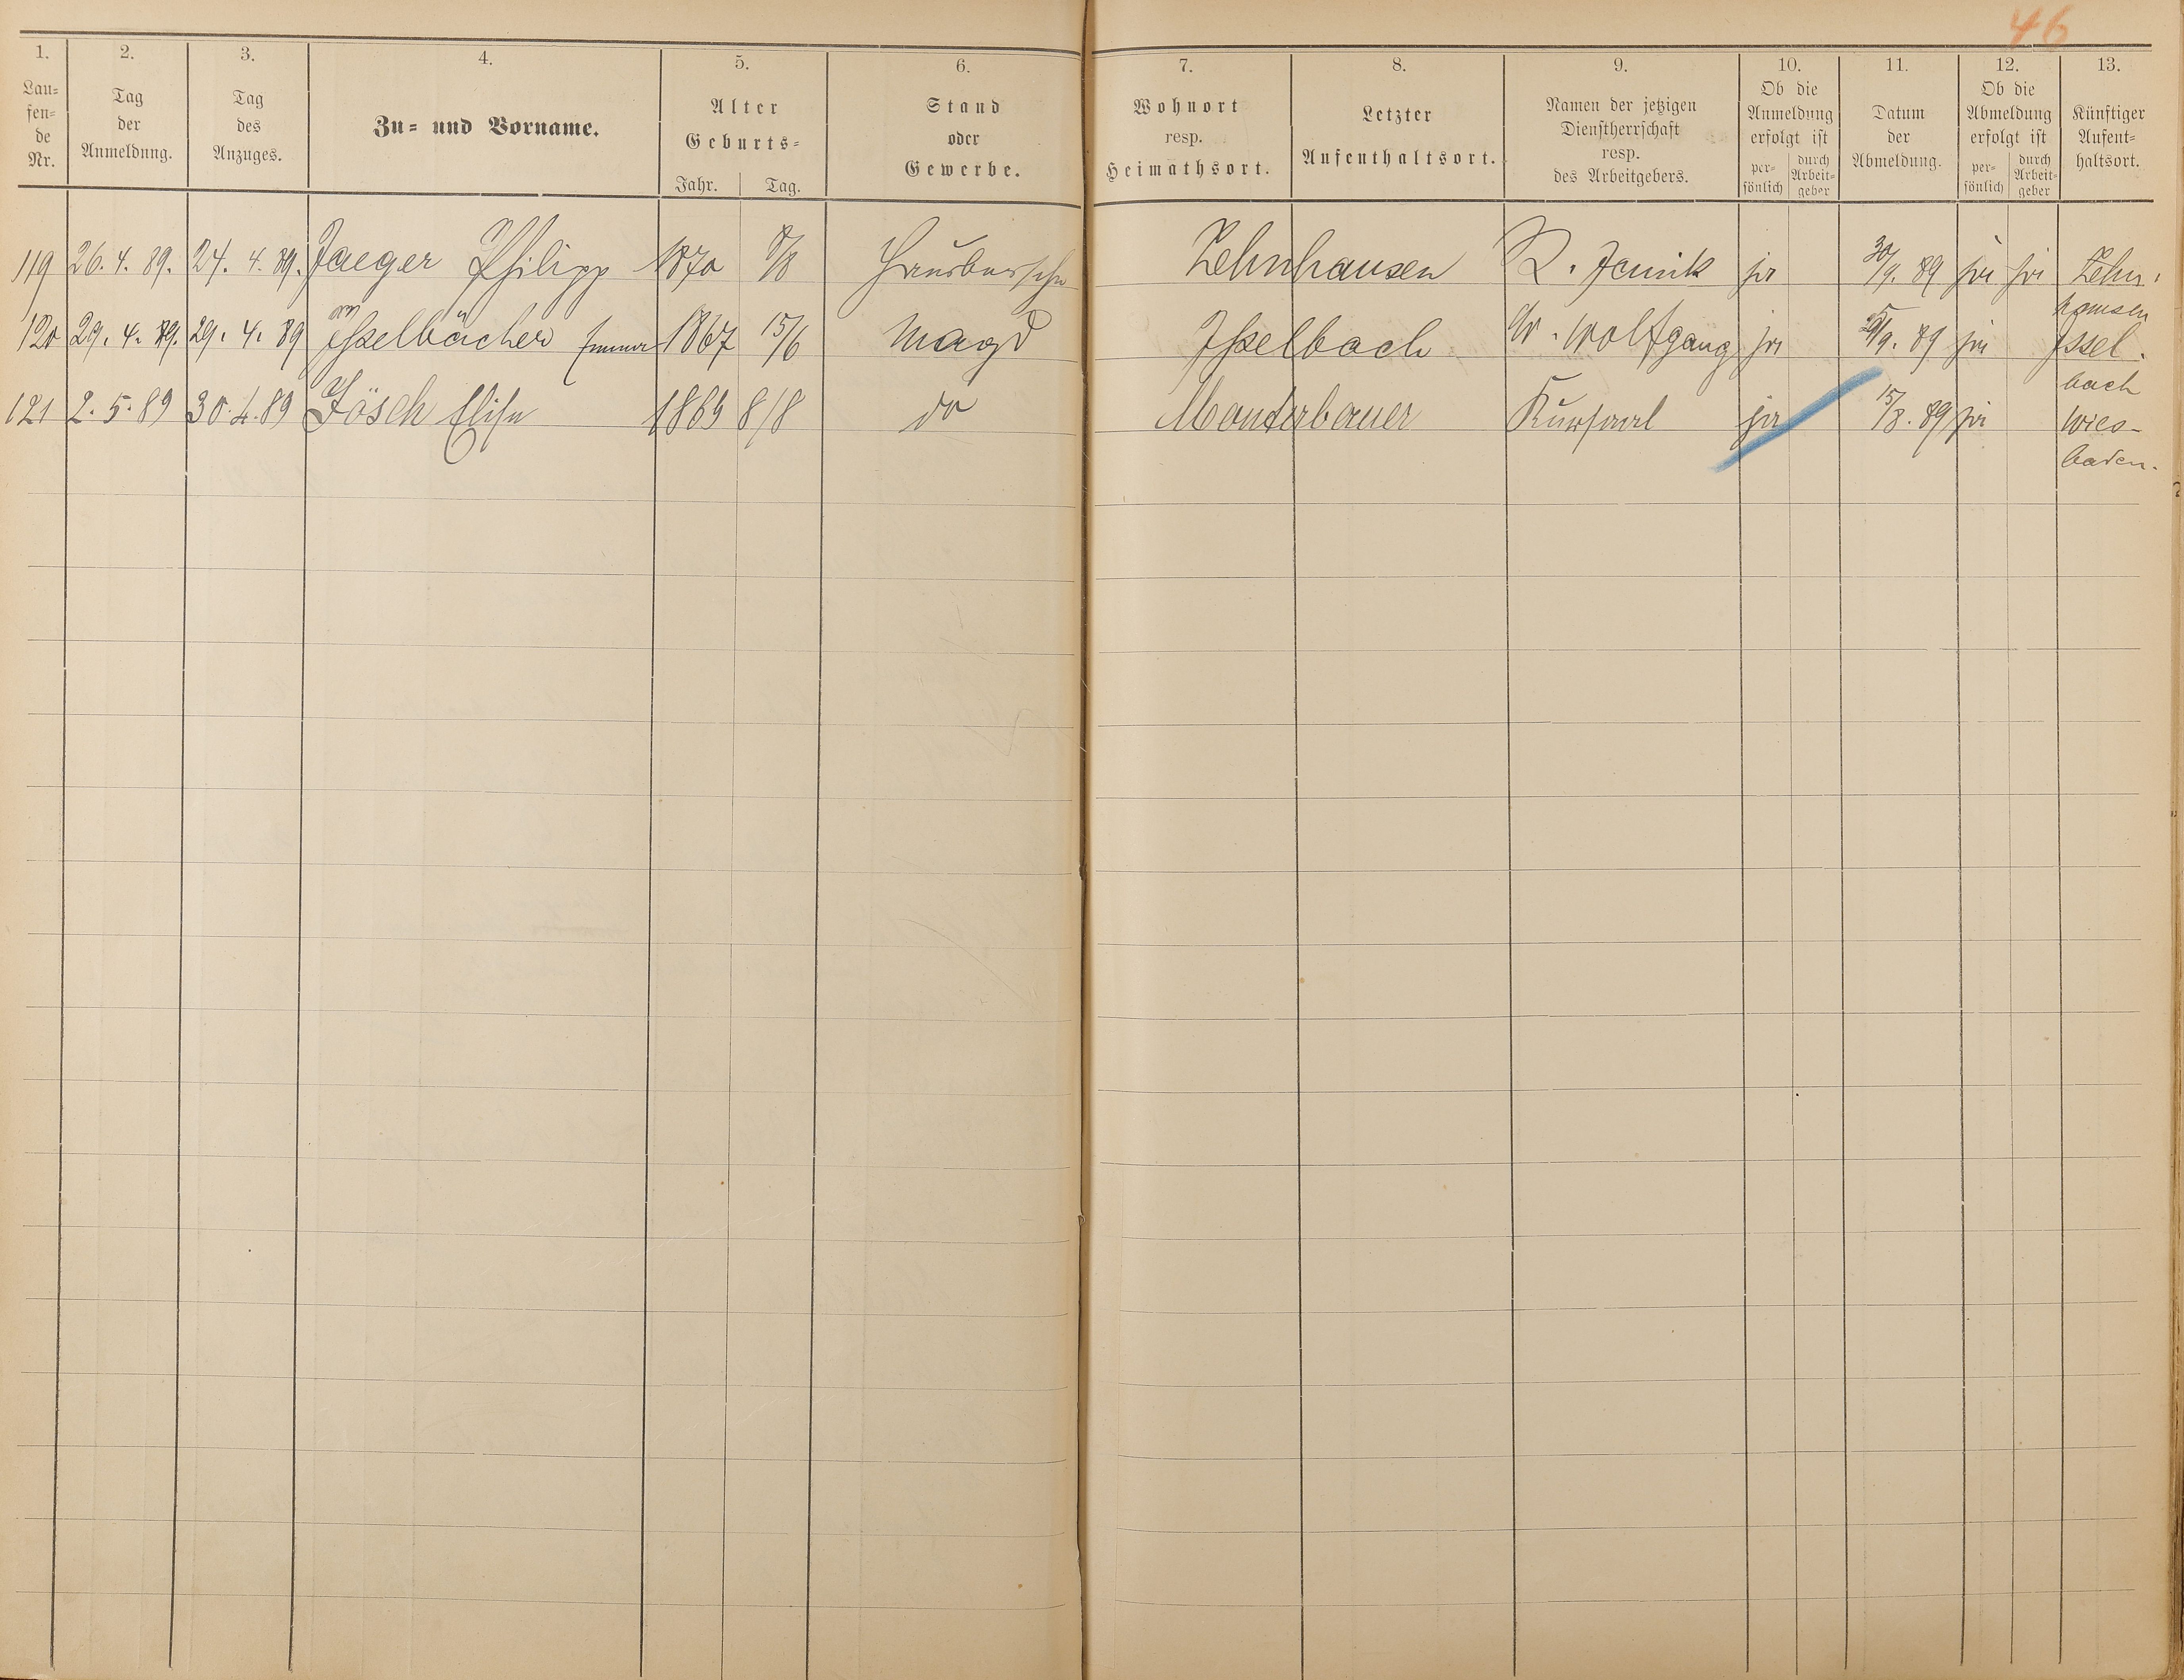 46
1. 2. 3. 4. 5. 6. 7. 8. 9. 10. 11. 12. 13.
Lau=
fen=
de
Nr.
Tag
der
Anmeldung.
Tag
des
Anzuges.
Zu= und Vorname.
Alter
Geburts=
Jahr. Tag.
Stand
oder
Gewerbe.
Wohnort
resp.
Heimathsort.
Letzter
Aufenthaltsort.
Namen der jetzigen
Dienstherrschaft
resp.
des Arbeitgebers.
Ob die
Anmeldung
erfolgt ist
per=
sönlich
durch
Arbeit=
geber
Datum
der
Abmeldung.
Ob die
Abmeldung
erfolgt ist
per=
sönlich
durch
Arbeit=
geber
Künftiger
Aufent=
haltsort.
119 26. 4. 89. 24. 4. 89. Jaeger Philipp 1870 8/8 Hausbursche Zehnhausen R. ja 30/9. 89 ja ja Zehn.
hausen
120 29. 4. 89. 29. 4. 89 Isselbächer Emma 1867 15/6 Magd Isselbach W. Wolfgang ja /9. 89 ja Issel.
bach
121 2. 5. 89 30. 4. 89 Jösch Elise 1869 8/8 do Montabauer Kursaal ja 15/8. 89 ja Wies-
baden.